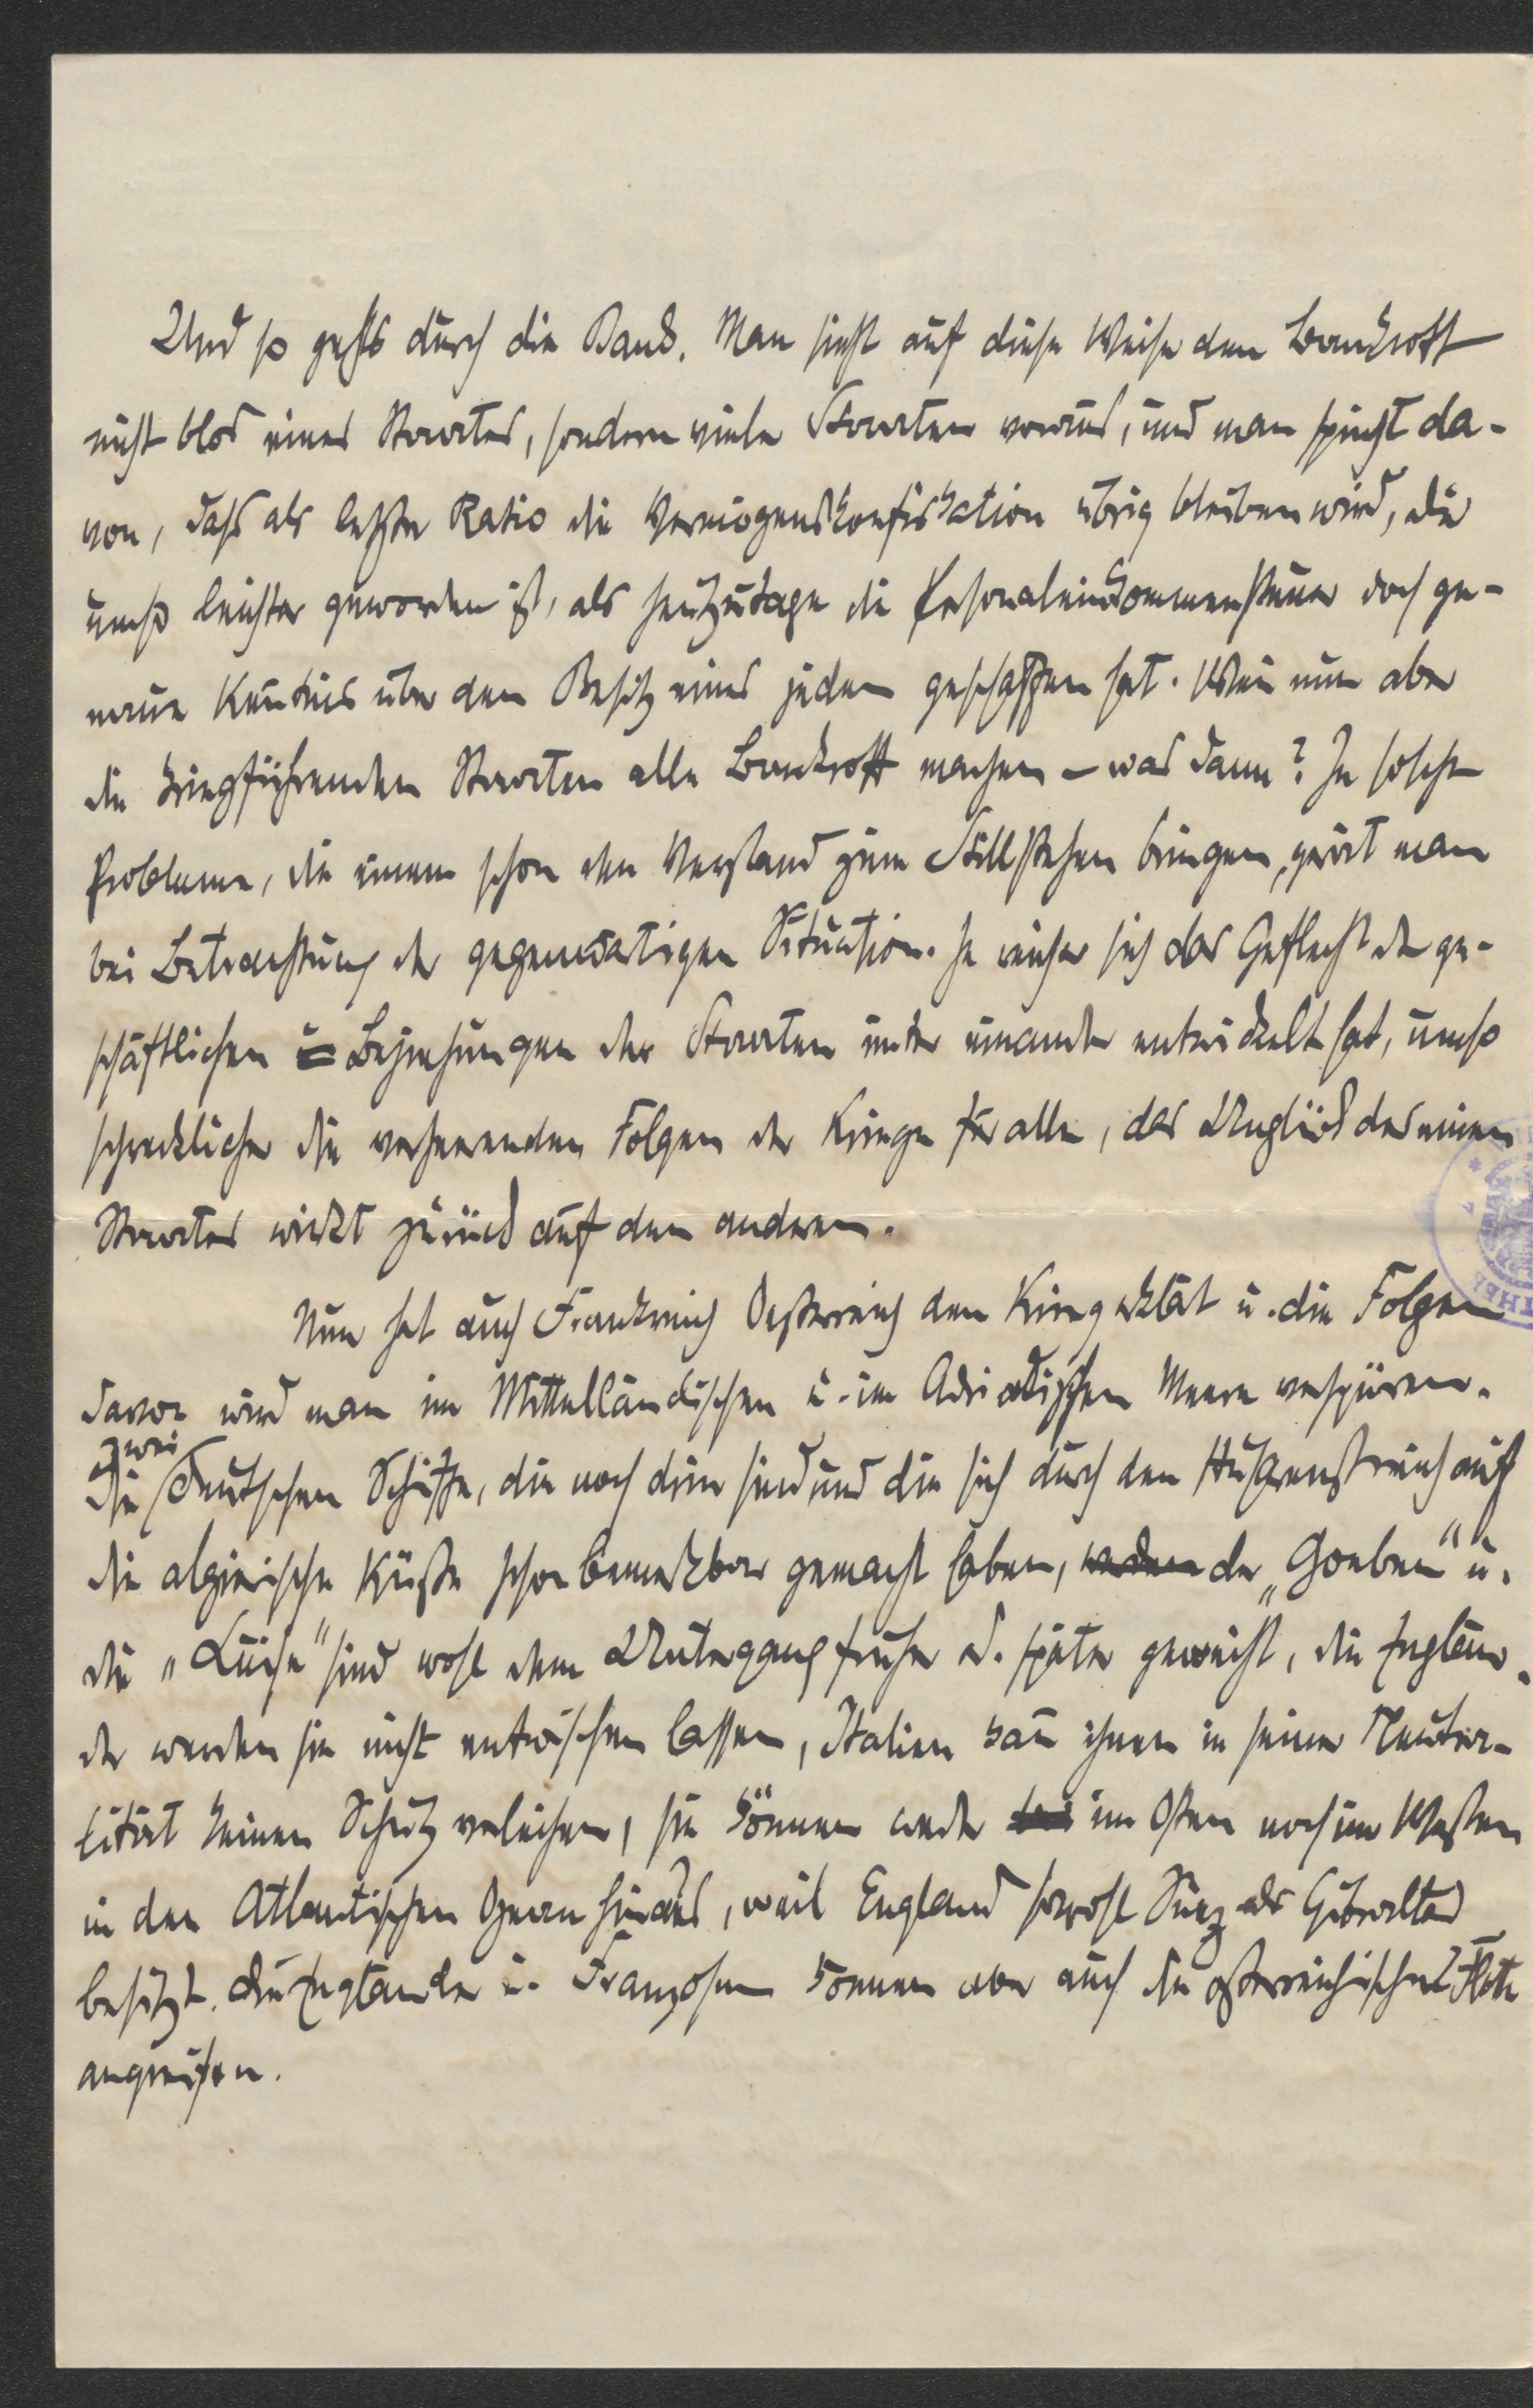 Und so gehts durch die Bank. Man sieht auf diese Weise den Bankrott
nicht blos eines Staates, sondern viele Staaten voraus, und man spricht da-
von, daß als letzte Ratio die Vermögenskonfiskation übrig bleiben wird, die
umso leichter geworden ist, als heutzutage die Personaleinkommensteuer doch ge-
naue Kentnis über den Besitz eines jeden geschaffen hat. Wen nun aber
die kriegführenden Staaten alle Bankrott machen – was dann? In solche
Probleme, die einem schon den Verstand zum Stillstehen bringen, gerät man
bei Betrachtung der gegenwärtigen Situation. Je reicher sich das Geflecht der ge-
schäftlichen Beziehungen der Staaten unter einander entwickelt hat, umso
schrecklicher die verheerenden Folgen der Kriege für alle, das Unglück des einen
Staates wirkt zurück auf den anderen.
Nun hat auch Frankreich Oesterreich den Krieg erklärt u. die Folgen
davon wird man im Mittelländischen u. im Adriatischen Meere verspüren.
zwei
Die deutschen Schiffe, die noch drin sind und die sich durch den Husarenstreich auf
die algierische Küste schon bemerkbar gemacht haben, der „Goeben" u.
die sind wohl dem Untergang früher od. später geweiht, die Englän-
der werden sie nicht entwischen lassen, Italien kan ihnen in seiner Neutra-
lität keinen Schutz verleihen, sie können weder im Osten noch im Westen
in den Atlantischen Ozean hinaus, weil England sowohl Suez als Gibraltar
besitzt. Die Engländer u. Franzosen können aber auch die österreichische Flotte
angreifen.